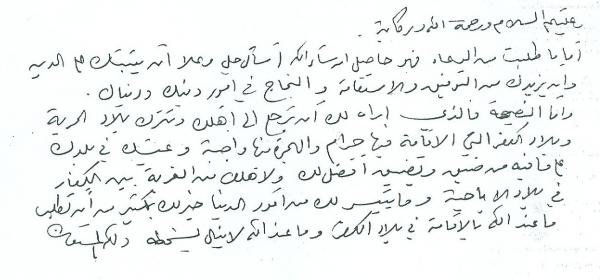 عليكم السلام ورحمة الله وبركاته.
أما ما طلبت من الدعاء فهو حاصل إن شاء الله أسأل الله جل وعلا أن يثبتك على الدين
وأن يزيدك من التوفيق والاستقامة والنجاح في أمور دينك ودنياك.
وأما النصيحة فالذي أراه لك أن ترجع إلى أهلك وتترك بلاد الحرية
وبلاد الكفر التي الإقامة فيها حرام والهجرة منها واجبة وعيشك في بلدك
على ما فيه من ضيق وتضييق أفضل لك ولأهلك من الغربة بين الكفار
في بلاد الإباحية وما يتيسر لك من أمور الدنيا خير لك بكثير من أن تطلب
ما عند الله بالإقامة في بلاد الكفر وما عند الله لا ينال بسخطه والله المستعان